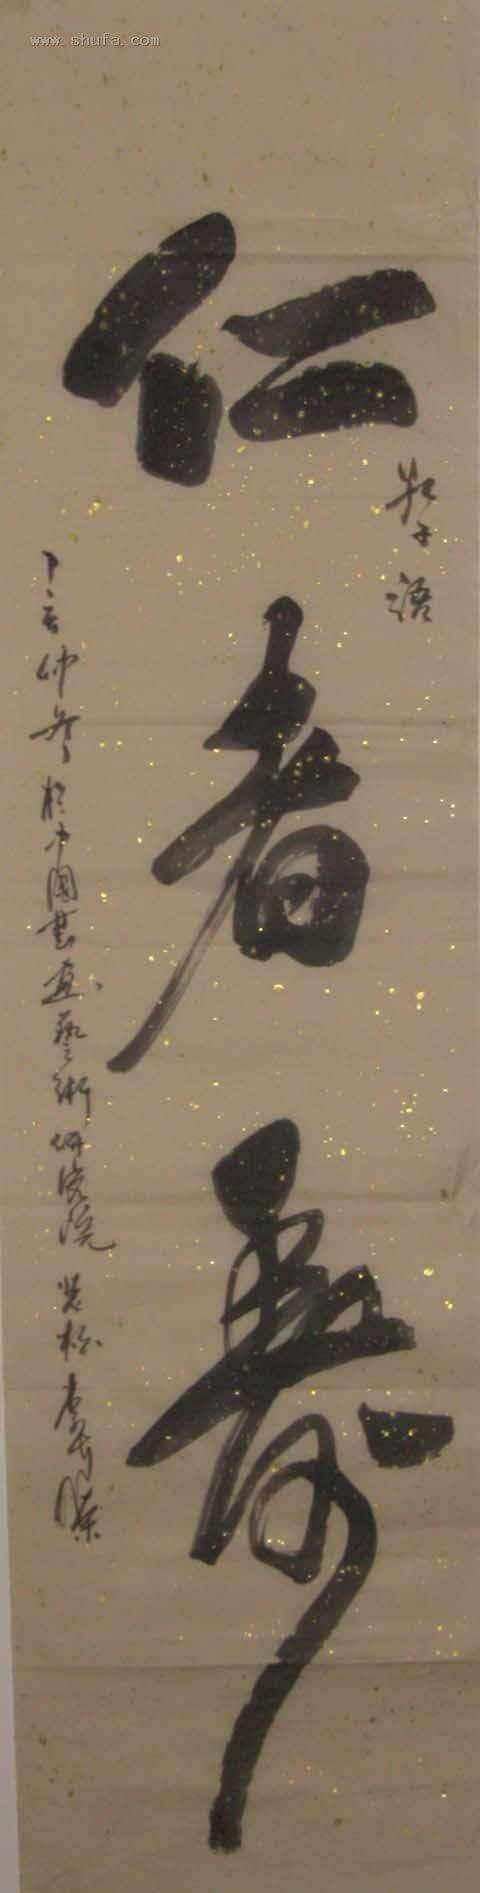 www.shufa.com
仁者寿
孔子语
丁亥仲冬於中國書画藝術研究院